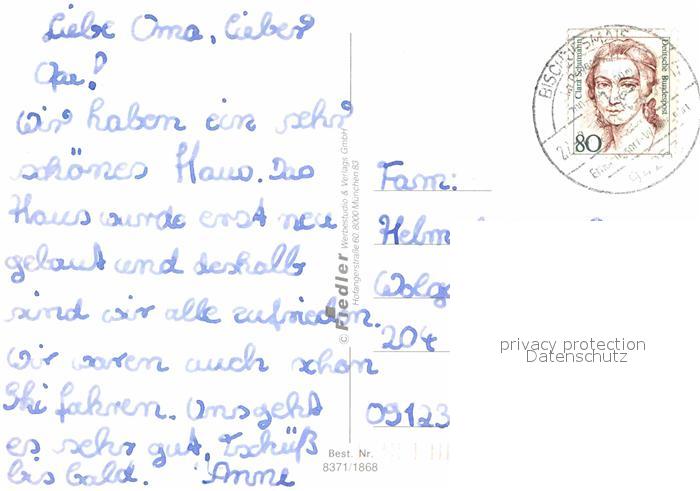 Liebe Oma, lieber
Opa!
wir haben ein sehr
schönes Haus. Das
Haus wurde erst neu
gebaut und deshalb
sind wir alle zufrieden.
wir waren auch schon
Ski fahren. Uns geht
es sehr gut, Tschüß
bis bald. Anni
© Fiedler Werbestudio & Verlags GmbH
Hofangerstraße 60 8000 München 83
Best. Nr.
8371/1868
Clara Schumann
Deutsche Bundespost
80
BISCHOFSMAIS
Fam:
Helm
Wolg
204
09123
privacy protection
Datenschutz